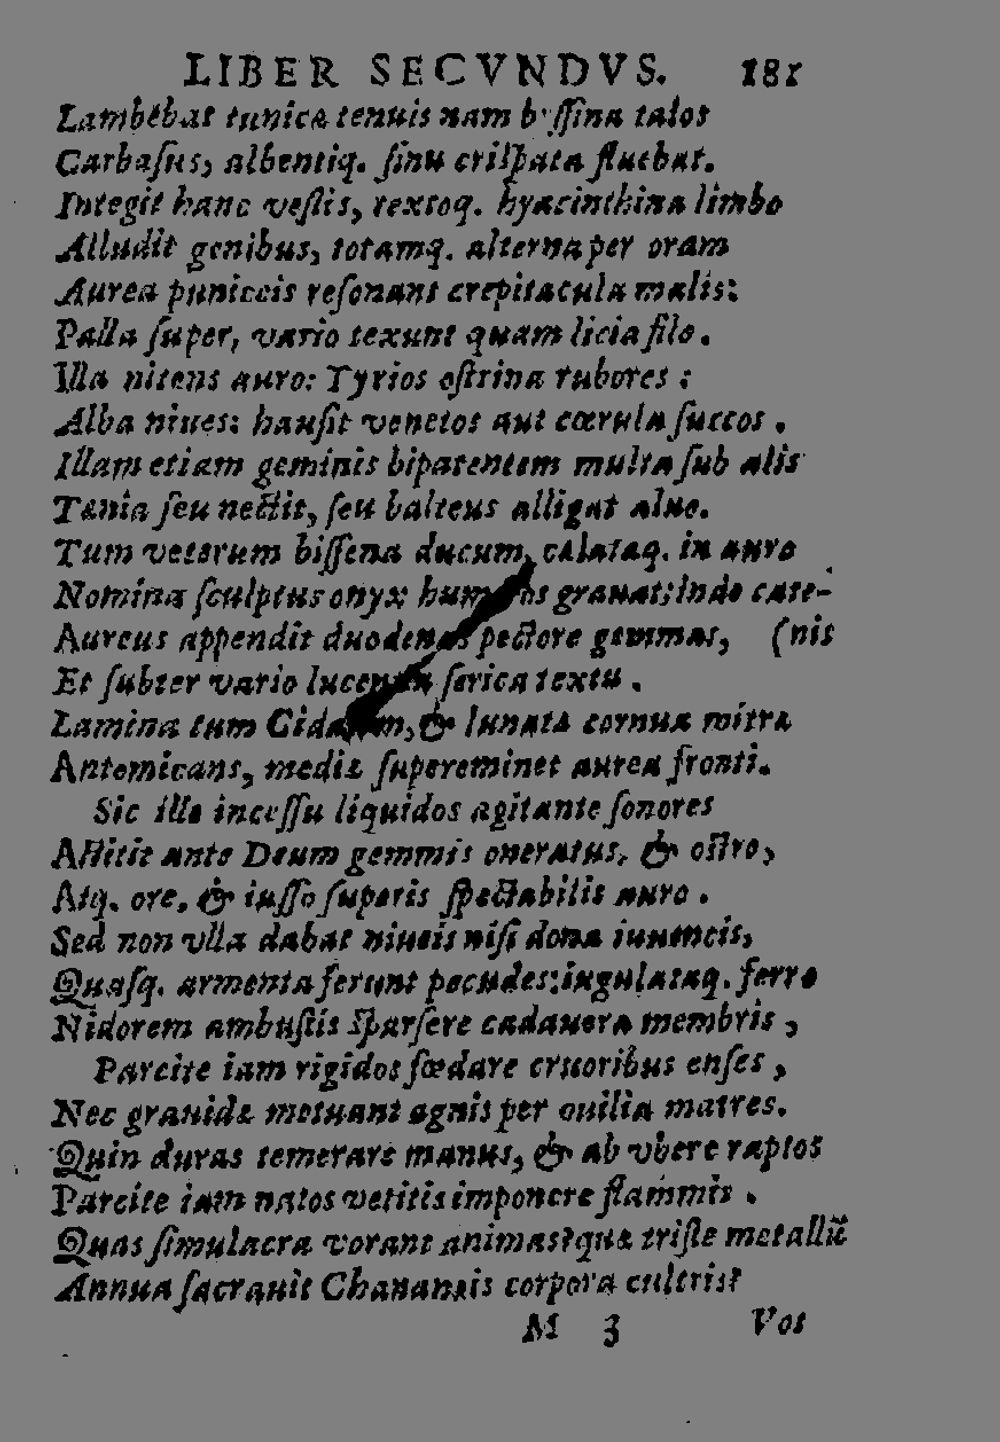 LIBER SECVNDVS. 181
Lambebat tunica tenuis nam byſſina talos
Carbaſus, albentiq. ſinu criſpata fluebat.
Integit hanc veſtis, textoq. hyacinthina limbo
Alludit genibus, totamq. alterna per oram
Aurea puniceis reſonant crepitacula malis:
Palla ſuper, vario texunt quam licia filo.
Illa nitens auro: Tyrios oſtrina rubores:
Alba niues: hauſit venetos aut cœrula ſuccos.
Illam etiam geminis bipatentem multa ſub alis
Tænia ſeu nectit, ſeu balteus alligat aluo.
Tum veterum biſſena ducum, cælataq. in auro
Nomina ſculptus onyx humeros grauat; inde cate-
Aureus appendit duodenas pectore gemmas, (nis
Et ſubter vario lucentia ſerica textu.
Lamina tum Cidarim, & lunatæ cornua mitræ
Antemicans, mediæ ſupereminet aurea fronti.
Sic ille inceſſu liquidos agitante ſonores
Aſtitit ante Deum gemmis oneratus, & oſtro,
Atq. ore, & iuſſo ſuperis ſpectabilis auro.
Sed non vlla dabat niueis niſi dona iuuencis,
Quaſq. armenta ferunt pecudes: iugulataq. ferro
Nidorem ambuſtis ſparſere cadauera membris,
Parcite iam rigidos fœdare cruoribus enſes,
Nec grauidæ metuant agnis per ouilia matres.
Quin duras temerare manus, & ab vbere raptos
Parcite iam natos vetitis imponere flammis.
Quas ſimulacra vorant animas? quæ triſte metallū
Annua ſacrauit Chananæis corpora cultris?
M 3 Vos